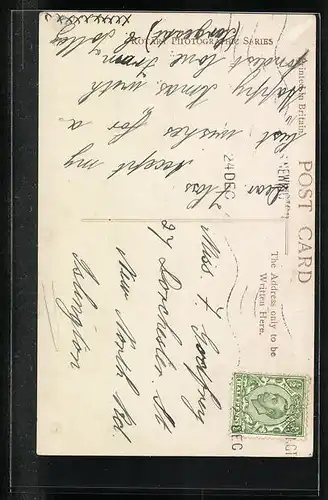 ROTARY PHOTOGRAPHIC SERIES
Printed in Britain
POST CARD
The Address only to be
Written Here.
24 DEC
Dear Floss
accept my
best wishes for a
Happy Xmas with
fondest love from
Dolly
xxxxxxxx
Miss F Godfrey
27 Dorchester St
New North Rd.
Islington